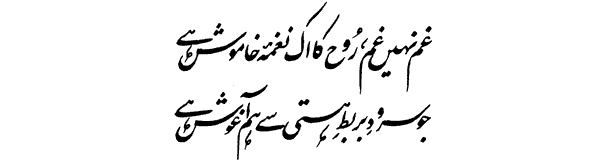 غم نہیں غم، رُوح کا اک نغمۂ خاموش ہے
جو سرودِ بربطِ ہستی سے ہم آغوش ہے